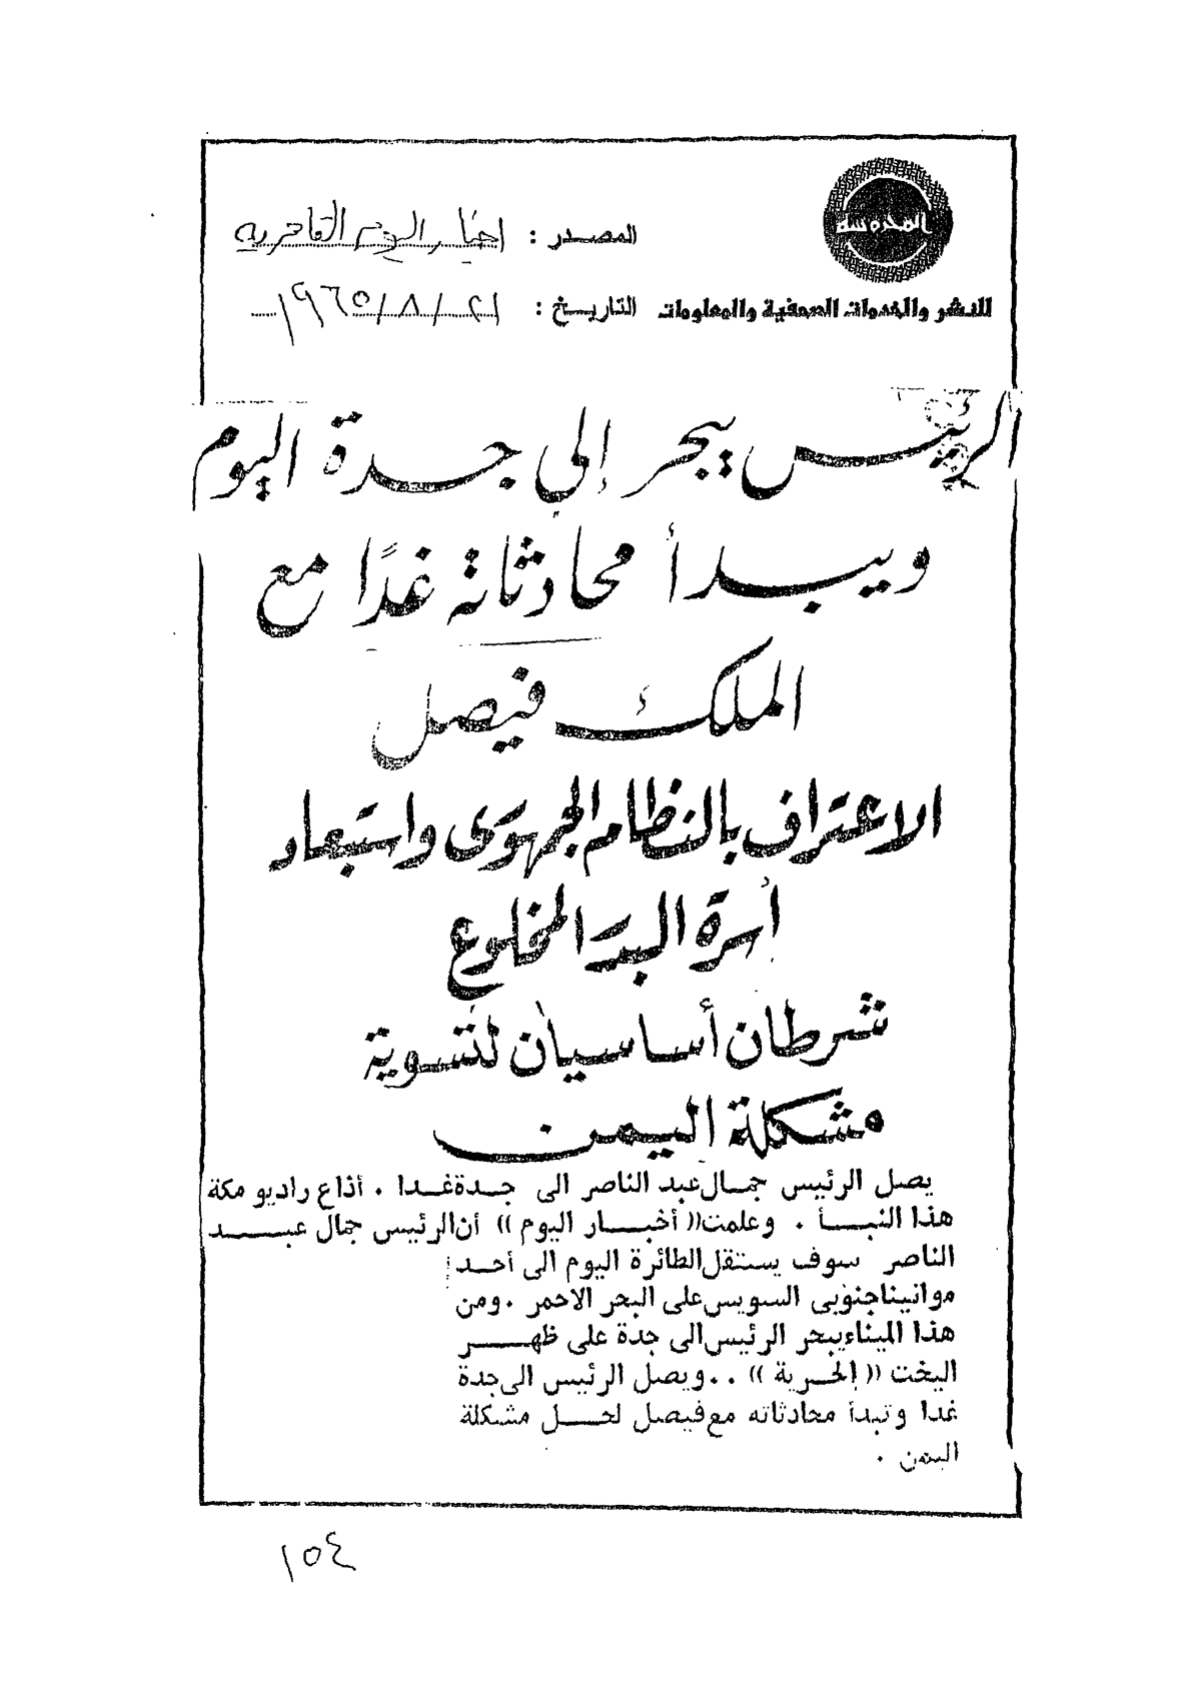 المحروسة
المصدر : اخبار اليوم القاهرية
للنشر والخدمات الصحفية والمعلومات التاريخ : ٢١/٨/١٩٦٥
الرئيس يبحر إلى جدة اليوم
ويبدأ محادثاته غدًا مع
الملك فيصل
الاعتراف بالنظام الجمهوى واستبعاد
أسرة البدر المخلوع
شرطان أساسيان لتسوية
مشكلة اليمن
يصل الرئيس جمال عبد الناصر الى جدة غدا . أذاع راديو مكة
هذا النبأ . وعلمت (( أخبار اليوم )) أن الرئيس جمال عبد
الناصر سوف يستقل الطائرة اليوم الى أحد
موانينا جنوبى السويس على البحر الاحمر . ومن
هذا الميناء يبحر الرئيس الى جدة على ظهر
اليخت (( الحرية )) .. ويصل الرئيس الى جدة
غدا وتبدأ محادثاته مع فيصل لحل مشكلة
اليمن .
١٥٤